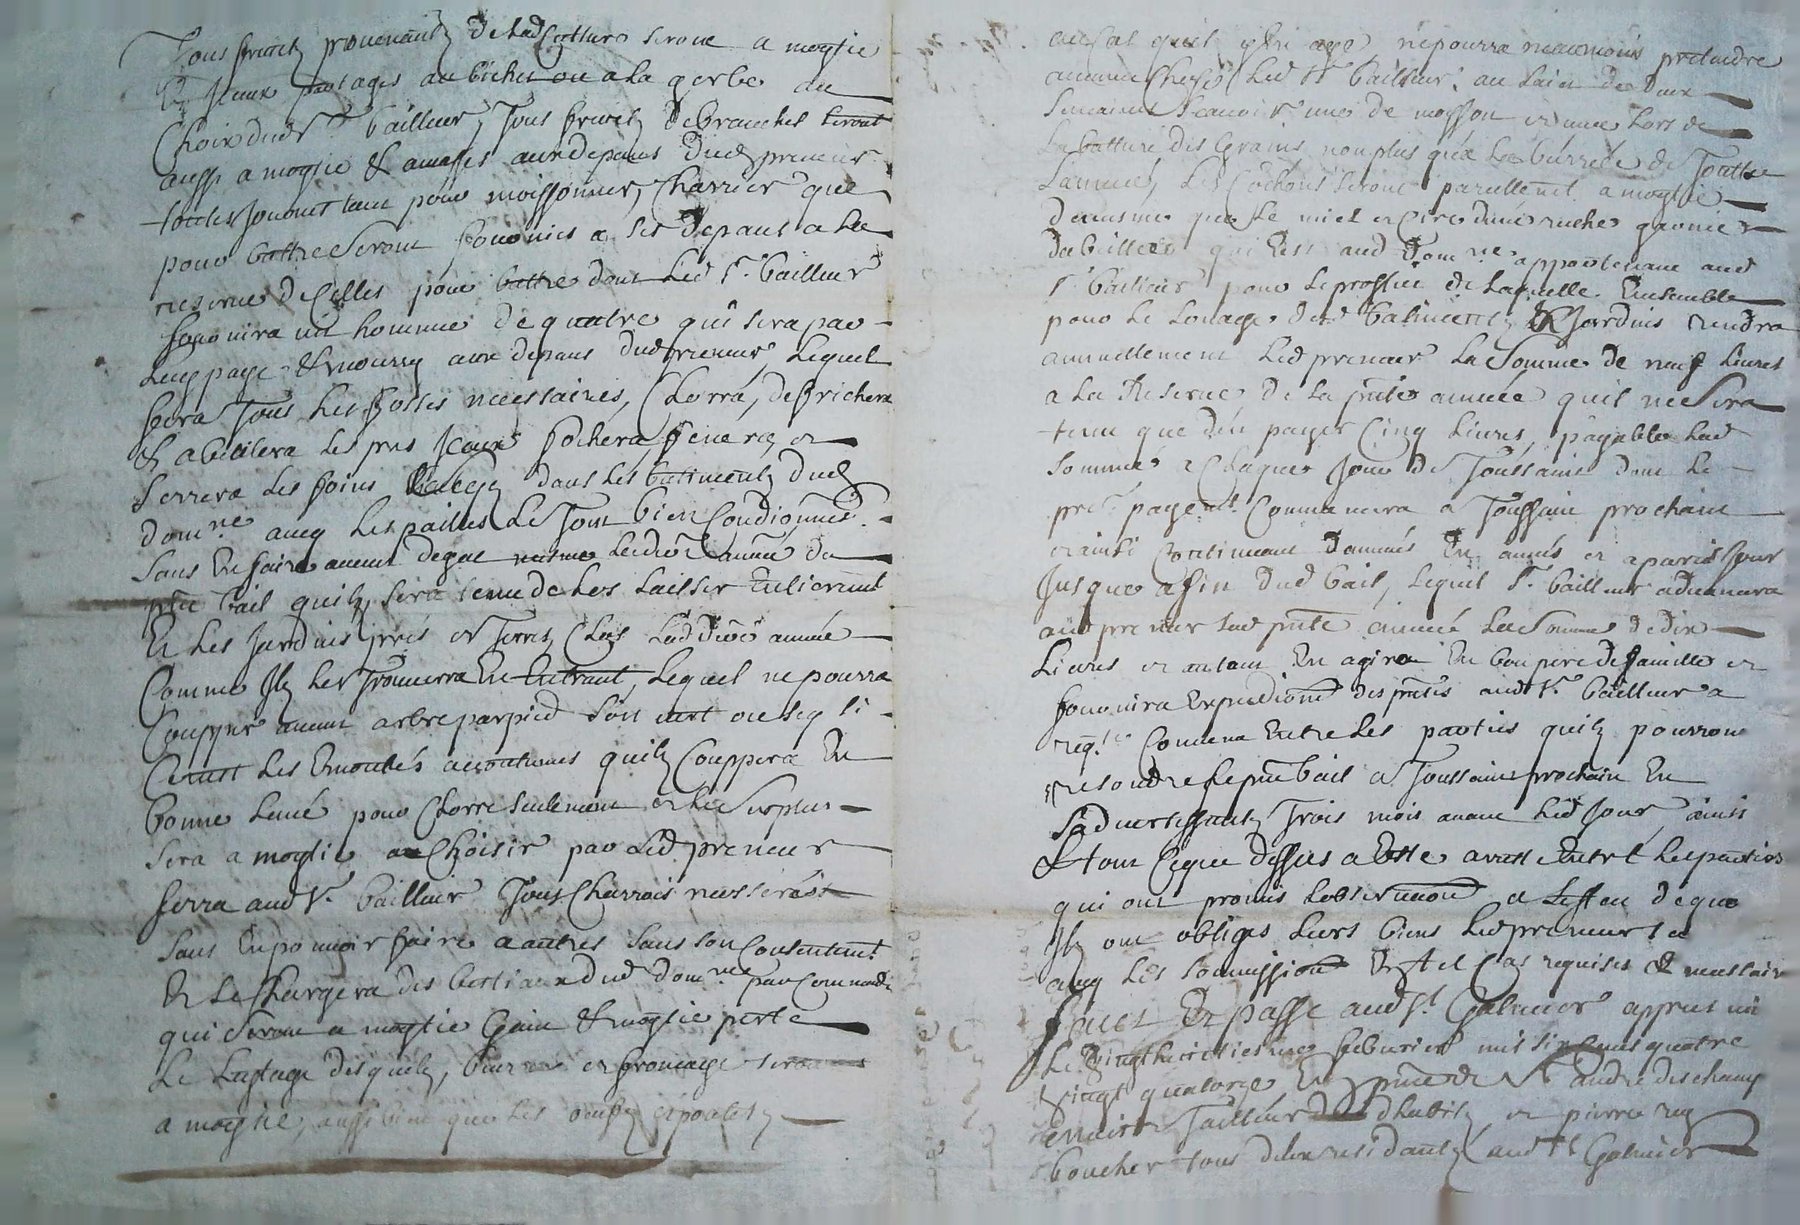 Tous fruict provenantz de lad Culture seront a moytie
Et Iceux partages au bichet ou a la gerbe au
Choix dud Sr bailleur, Tous fruictz de branches seront
aussi a moytie & amasses aux depans dud preneur
toutes Journées tant pour moissonner, Charrier que
pour battre seront fournies a ses depans a la
reserve de Celles pour battre dont Led Sr. bailleur
fournira un homme de quatre qui sera par
Luy paye & nourry aux depans dud preneur, Lequel
fera Tous Les fosses necessaires, Clorra, defrichera
& abielera les pres Iceux fochera, fenera, et
Serrera Les foins dans Les batimentz dud
dom.ne avecq Les pailles Le Tout bien Condiõnné
Sans En faire aucun degat mesme La derre année du
pñt bail quil sera tenu de Les Laisser Entierement
Et Les Jardins, prés et Terres Clos Lad dre année
Comme Ilz Les Trouvera En Entrant, Lequel ne pourra
Coupper aucun arbre par pied soit vert ou seq si
Ce nest Les Emondes accoutumés quil Couppera En
bonne Lune pour Clorre seulement et Le Surplus
Sera a moytie a Choisir par Led preneur
ferra aud Sr. bailleur Tous Charrois necesseres
Sans En pouvoir faire a autres sans son Consentemt
Et Se Chargera des bestiaux dud dom.ne par Commande
qui seront a moytie Gain & moytie perte
Le Laytage desquelz, beurre et fromage seront
a moytie, aussi bien que Les oeufz et pouletz
aucune Chose Led Sr bailleur au Laict de deux
Semaines scavoir une de moisson et une Lors de
La batture des Grains, non plus que La burrée de Toutte
Lannée, Les Cochons seront pareillemt a moytie
de mesme que Le miel et Cire dune ruche garnie
dabeilles qui Est aud Dom.ne appartenant aud
Sr. bailleur pour Le proffict de Laquelle Ensemble
pour Le Louage desd batimentz & Jardins rendra
annuellement Led preneur La Somme de neuf Livres
a La Reserve de La pñte année quil ne Sera
tenu que den payer Cinq Livres, payable Lad
Somme a Chaque Jour de Toussaint dont Le
pre. payemt. Commancera a Toussaint prochain
et ainsi Continuant dannés En annés et a pareil Jour
Jusque a fin dud bail, Lequel Sr. bailleur advancera
aud preneur Lad pñte année La Somme de dix
Livres et autant En agira En bon pere de famille et
fournira Expediõn des pñtes aud Sr. bailleur a
req.te Convenu Entre Les parties quilz pourront
resoudre Le pñt bail a Toussaint prochain En
Sadvertissantz Trois mois avant Led Jour, ainsi
& tout Ceque dessus a Este areste Entre Les parties
qui ont promis Lobservaõn a Leffect de quoy
Ilz ont obliges Leurs biens Led preneur sa
avecq Les Soumissions En tel Cas requises & necessaires
faict Et passe aud St. Galmier appres mi
Le vingthuictiesme febvrier mil six Cens quatre
vingt quatorze En pñce de Sr. andré deschamp
Tailleur dhabitz et pierre rey
boucher tous deux residantz aud St Galmier